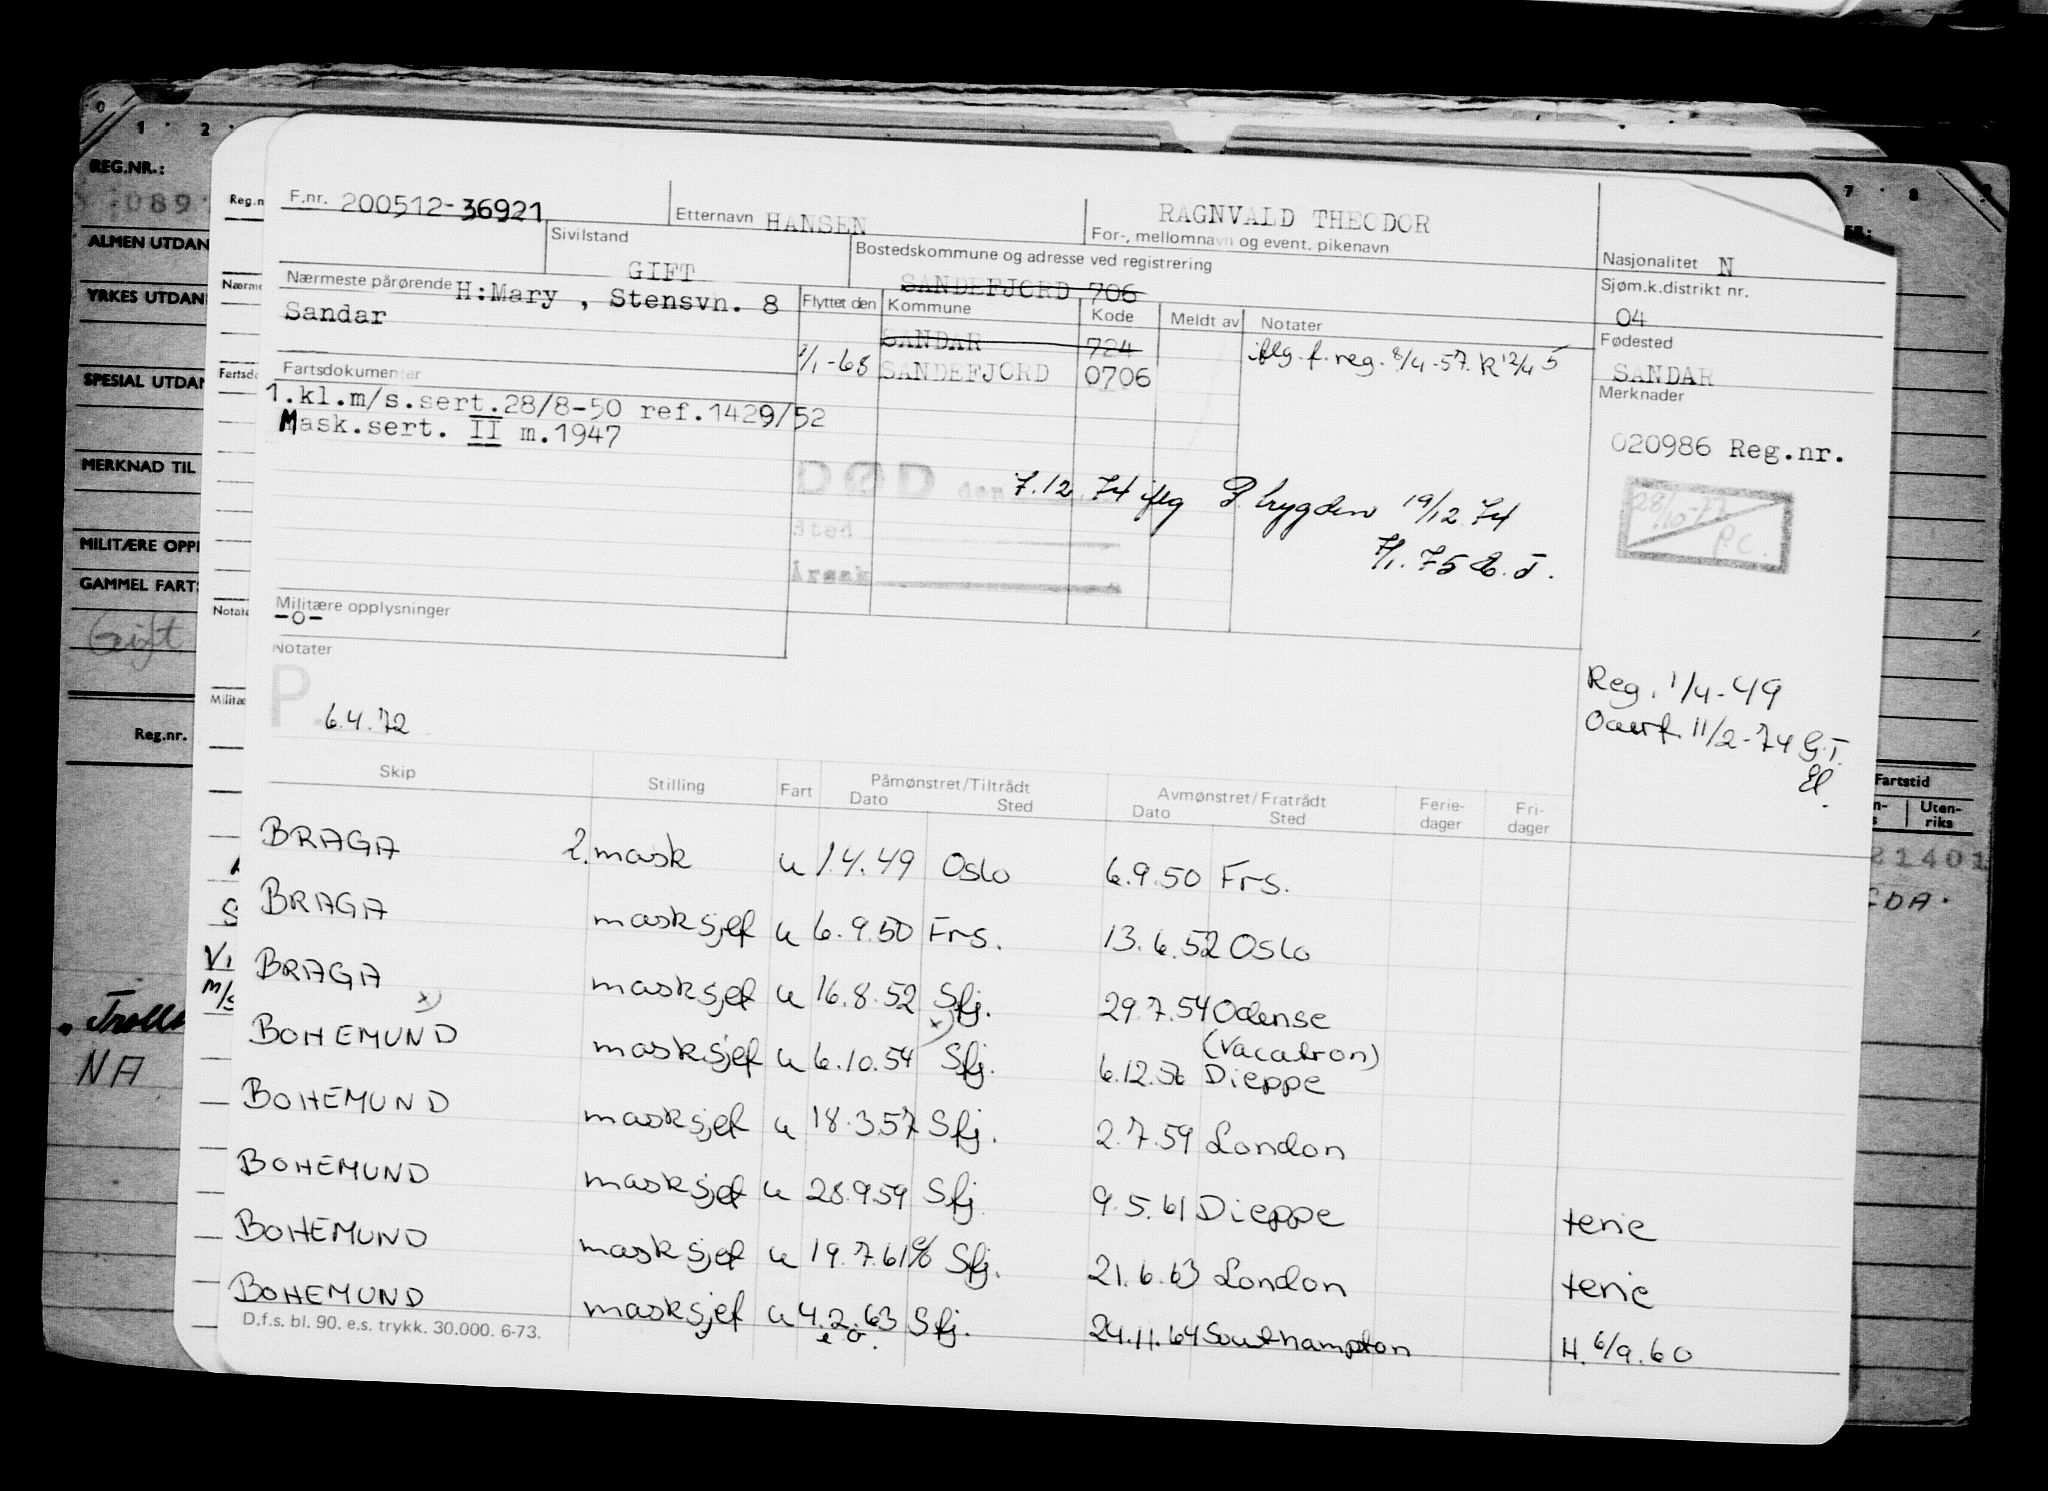 0 1 2 7 8
REG.NR.:
089
ALMEN UTDAN
YRKES UTDAN
SPESIAL UTDAN
MERKNAD TIL
MILITÆRE OPPL
GAMMEL FARTS
Gift
Reg.nr.
"Troll
NA
Reg.n
Nærme
Fartsdo
Notate
Militæ
S
VI
M/S
F.nr. 200512-36921 Etternavn HANSEN RAGNVALD THEODOR
For-, mellomnavn og event. pikenavn
Sivilstand GIFT
Bostedskommune og adresse ved registrering
SANDEFJORD 706
Nasjonalitet N
Sjøm.k.distrikt nr.
04
Fødested
SANDAR
Merknader
020986 Reg.nr.
28/10-77
P.C.
Nærmeste pårørende H:Mary , Stensvn. 8
Sandar
Flyttet den Kommune Kode Meldt av Notater
SANDAR 724
1/1-68 SANDEFJORD 0706
iflg. f. reg. 8/4-57. R 12/4 5
Fartsdokumenter
1.kl.m/s.sert.28/8-50 ref.1429/52
Mask.sert. II m.1947
DØD den 7.12 74 iflg P. trygden 19/12 74
Sted
7/1. 75
Årsak
Militære opplysninger
-o-
Notater
P. 6.4.72
Reg. 1/4-49
Overf. 11/2-74 G.T.
El.
Skip Stilling Fart Påmønstret/Tiltrådt Avmønstret/Fratrådt Ferie-dager Fri-dager
Dato Sted Dato Sted
BRAGA 2. mask u 1.4.49 Oslo 6.9.50 Frs.
BRAGA masksjef u 6.9.50 Frs. 13.6.52 Oslo
BRAGA masksjef u 16.8.52 Sfj. 29.7.54 Odense
x) x) (vacatron)
BOHEMUND masksjef u 6.10.54 Sfj. 6.12.56 Dieppe
BOHEMUND masksjef u 18.3.57 Sfj. 2.7.59 London
BOHEMUND masksjef u 28.9.59 Sfj. 9.5.61 Dieppe ferie
BOHEMUND masksjef u 19.7.61 Sfj. 21.6.63 London ferie
BOHEMUND masksjef u 4.2.63 Sfj. 24.11.64 Southampton H. 6/9.60
e o.
D.f.s. bl. 90. e.s. trykk. 30.000. 6-73.
Fartstid
Uten-
riks
21401
EDA.